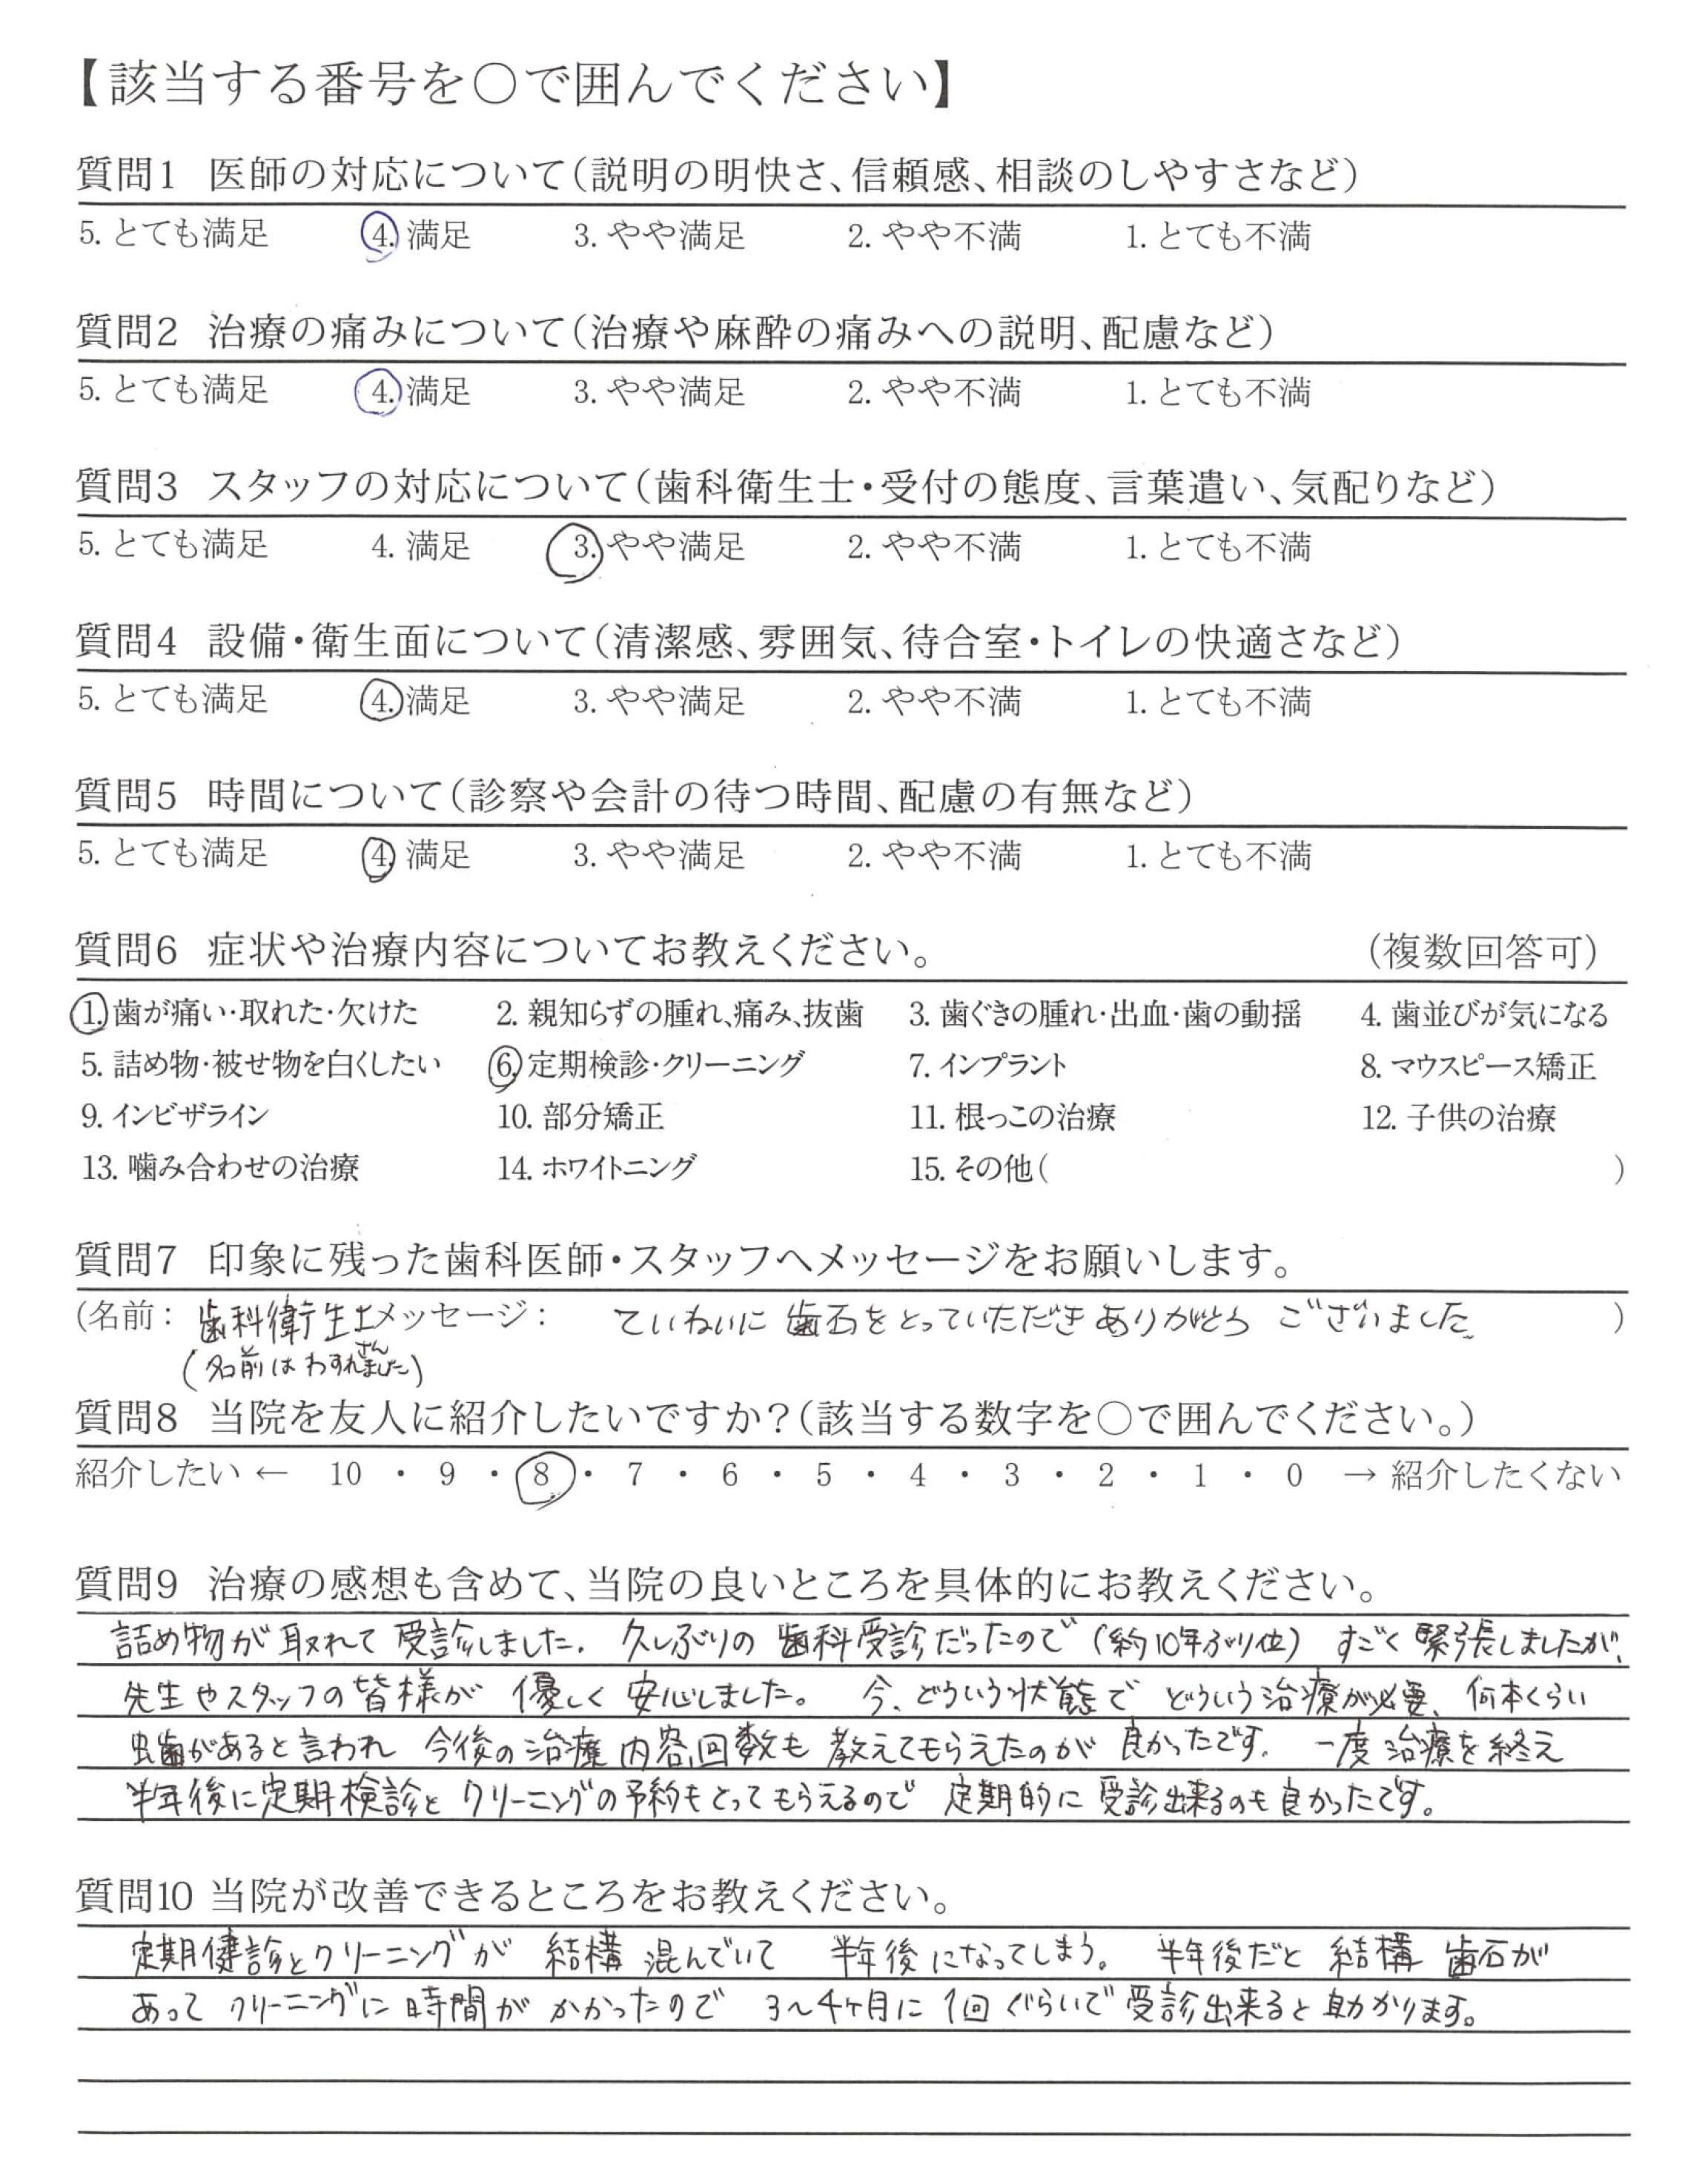 【該当する番号を○で囲んでください】
質問1 医師の対応について(説明の明快さ、信頼感、相談のしやすさなど)
5. とても満足 4. 満足 3. やや満足 2. やや不満 1. とても不満
質問2 治療の痛みについて(治療や麻酔の痛みへの説明、配慮など)
5. とても満足 4. 満足 3. やや満足 2. やや不満 1. とても不満
質問3 スタッフの対応について(歯科衛生士・受付の態度、言葉遣い、気配りなど)
5. とても満足 4. 満足 3. やや満足 2. やや不満 1. とても不満
質問4 設備・衛生面について(清潔感、雰囲気、待合室・トイレの快適さなど)
5. とても満足 4. 満足 3. やや満足 2. やや不満 1. とても不満
質問5 時間について(診察や会計の待つ時間、配慮の有無など)
5. とても満足 4. 満足 3. やや満足 2. やや不満 1. とても不満
質問6 症状や治療内容についてお教えください。 (複数回答可)
1. 歯が痛い・取れた・欠けた 2. 親知らずの腫れ、痛み、抜歯 3. 歯ぐきの腫れ・出血・歯の動揺 4. 歯並びが気になる
5. 詰め物・被せ物を白くしたい 6. 定期検診・クリーニング 7. インプラント 8. マウスピース矯正
9. インビザライン 10. 部分矯正 11. 根っこの治療 12. 子供の治療
13. 噛み合わせの治療 14. ホワイトニング 15. その他( )
質問7 印象に残った歯科医師・スタッフへメッセージをお願いします。
(名前: 歯科衛生士 メッセージ: ていねいに 歯石をとっていただき ありがとう ございました )
さん
(名前は わすれました)
質問8 当院を友人に紹介したいですか?(該当する数字を○で囲んでください。)
紹介したい ← 10 ・ 9 ・ 8 ・ 7 ・ 6 ・ 5 ・ 4 ・ 3 ・ 2 ・ 1 ・ 0 → 紹介したくない
質問9 治療の感想も含めて、当院の良いところを具体的にお教えください。
詰め物が取れて 受診しました. 久しぶりの 歯科受診だったので (約10年ぶり位) すごく 緊張しましたが、
先生やスタッフの 皆様が 優しく 安心しました。 今、どういう状態で どういう治療が必要、何本くらい
虫歯があると言われ 今後の治療内容、回数も 教えてもらえたのが 良かったです. 一度治療を終え
半年後に定期検診と クリーニングの予約もとってもらえるので 定期的に 受診出来るのも良かったです。
質問10 当院が改善できるところをお教えください。
定期健診とクリーニングが 結構 混んでいて 半年後になってしまう。 半年後だと 結構 歯石が
あって クリーニングに 時間が かかったので 3〜4ヶ月に 1回 ぐらいで 受診出来ると 助かります。